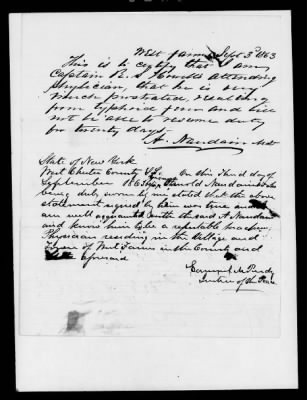 West Farms Sept 3d 1863
This is to certify that I am
Captain R. S. attending
physician, that he is very
much prostrated, resulting
from typhoid fever and will
not be able to resume duty
for twenty days.
A. Nandain MD
State of New York
West Chester County SS. on this Third day of
September 1863 Arnold Nandain who
being duly sworn by me stated that the above
statement signed by him was true and I
am well acquainted with the said A Nandain
and know him to be a reputable practicing
Physician residing in the Village and
Town of West Farms in the County and
State aforesaid
Samuel M Purdy
Justice of the Peace